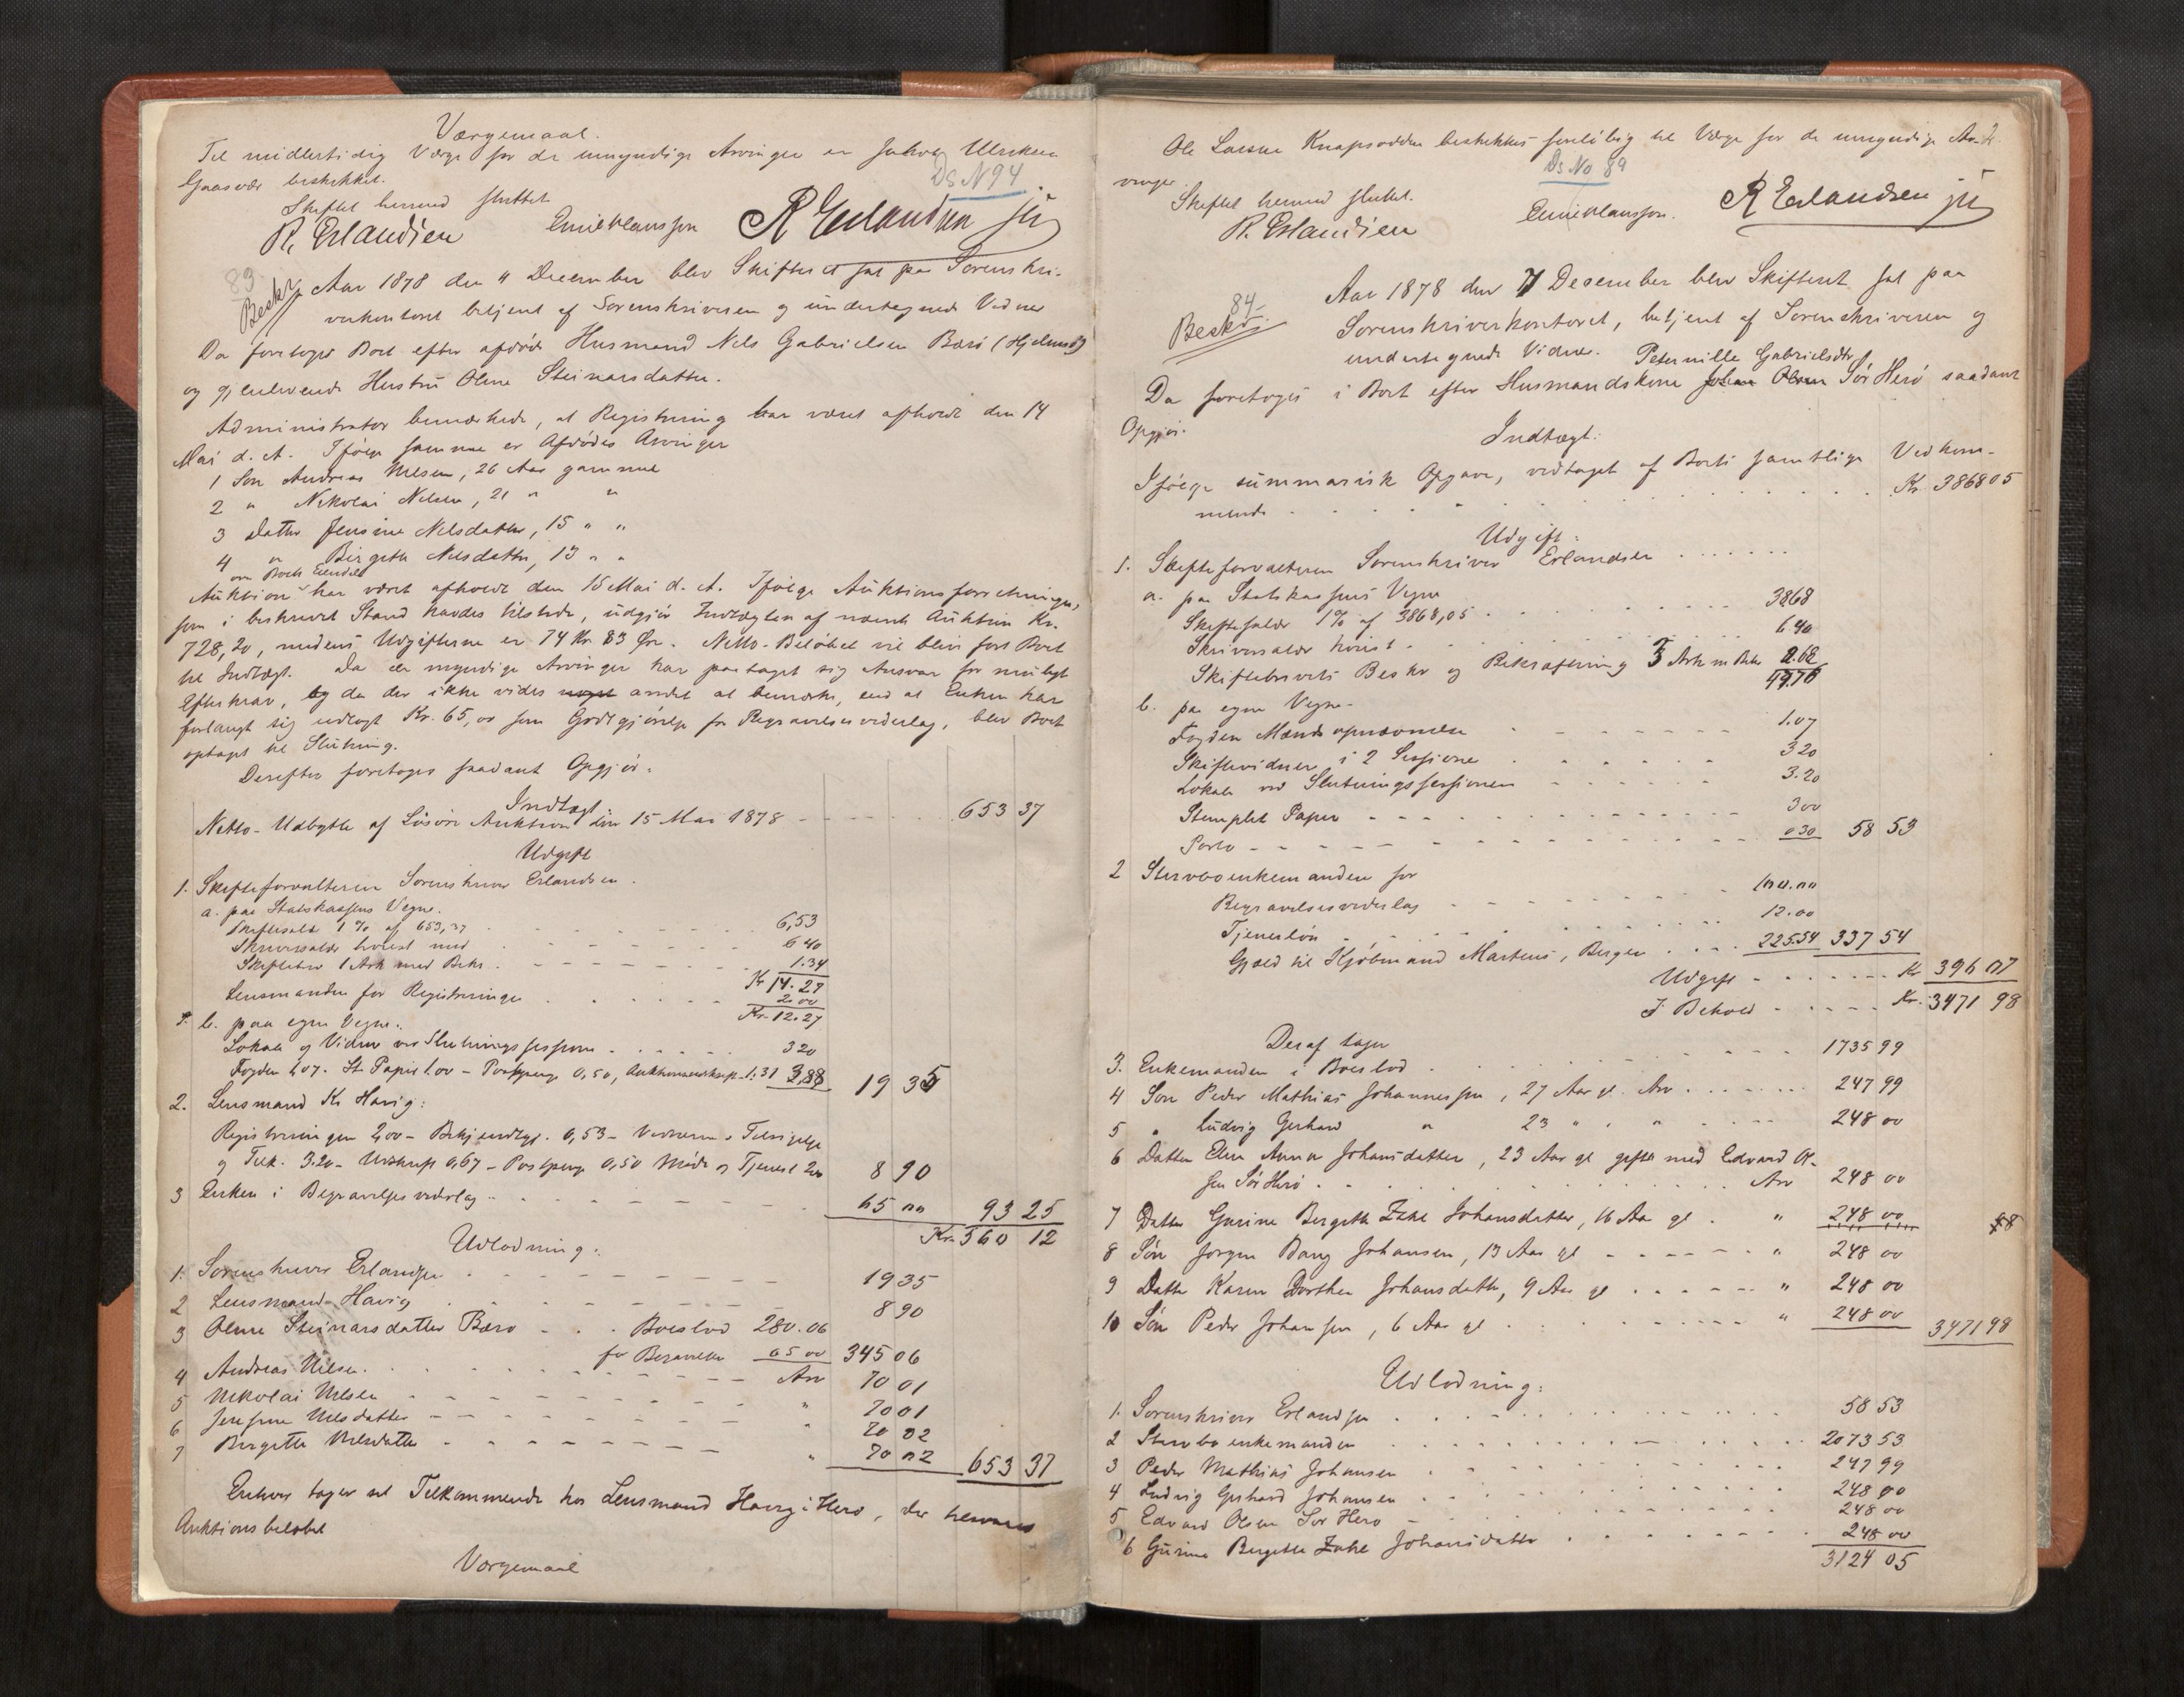 Værgemaal.
Til midlertidig Værge for de umyndige Arvinger er Jakob Ulriksen
Gaasvær beskikket.
Ds N 94
Skiftet hermed sluttet
R. Erlandsen Emil Klausson R Erlandsen jr
83
Beskr. Aar 1878 den 4 December blev Skifteret sat paa Sorenskri-
verkontoret betjent af Sorenskriveren og undertegnede Vidner
Da foretoges Boet efter afdøde Husmand Nils Gabrielsen Bærø (Hjelmsø)
og gjenlevende Hustru Oline Steinarsdatter.
Administrator bemærkede, at Registrering har været afholdt den 14
Mai d. A. Ifølge samme er Afdødes Arvinger
1 Søn Andreas Nilsen, 26 Aar gammel
2 " Nikolai Nilsen, 21 " "
3 Datter Jensine Nilsdatter, 15 " "
4 " Birgitte Nilsdatter, 13 " "
over Boets Eiendele
Auktion har været afholdt den 15 Mai d. A. Ifølge Auktionsforretningen,
som i beskrevet Stand havdes tilstede, udgjør Indtægten af nævnte Auktion Kr.
728,20, medens Udgifterne er 74 Kr. 83 Øre. Netto-Beløbet vil blive ført Boet
til Indtægt. Da de myndige Arvinger har paataget sig Ansvar for muligt
Efterkrav, og da der ikke vides noget andet at bemærke, end at Enken har
forlangt sig udlagt Kr. 65,00 som Godtgjørelse for Begravelsesvederlag, blev Boet
optaget til Slutning.
Derefter foretoges saadant Opgjør:
Indtægt
Netto-Udbytte af Løsøre Auktion den 15 Mai 1878 - - - 653 37
Udgift
1. Skifteforvalteren Sorenskriver Erlandsen.
a. paa Statskassens Vegne.
Skiftesalær 1% af 653,37 6,53
Skriversalær høiest med 6 40
Skiftebrev 1 Ark med Bekr. 1.34
Kr 14.27
Lensmanden for Registreringen 2.00
Kr. 12.27
b. paa egne Vegne.
Lokale og Vidner ved Slutningssessionen 3 20
Fogden 1,07. St. Papir 1.00 - Postpenge 0,50, Auktionsudskrift 1.31 3,88 19 35
2. Lensmand Kr Havig:
Registreringen 2,00 - Bekjendtgj. 0,53 - Vidnerne s Tilsigelse
og Tilk. 3.20 - Udskrift 0,67 - Postpenge 0,50 Møde og Tjenest 2,00 8 90
3 Enken i Begravelsesvederlag 65 00 93 25
Kr. 560 12
Udlodning:
1. Sorenskriver Erlandsen 19 35
2 Lensmand Havig 8 90
3 Oline Steinarsdatter Bærø - Boeslod 280.06
for Begravelse 65 00 345 06
4 Andreas Nilsen. Arv 70 01
5 Nikolai Nilsen " 70 01
6 Jensine Nilsdatter " 70 02
7 Birgitte Nilsdatter " 70 02 653 37
Enhver tager sit Tilkommende hos Lensmand Havig i Herø, der hæver
Auktionsbeløbet
Værgemaal
Ole Larsen Knapsodden beskikkes foreløbig til Værge for de umyndige Ar-
vinger
Ds No 89
Skiftet hermed sluttet.
R. Erlandsen Emil Klausson. R Erlandsen jr
84
Beskr.
Aar 1878 den 7 December blev Skifteret sat paa
Sorenskriverkontoret, betjent af Sorenskriveren og
undertegnede Vidner. Peternille Gabrielsdtr
Da foretoges i Boet efter Husmandskone Johan Olsen Sør Herø saadant
Opgjør.
Indtægt:
Ifølge summarisk Opgave, vedtaget af Boets samtlige Vedkom-
mende Kr. 3868 05
Udgift:
1. Skifteforvalteren Sorenskriver Erlandsen
a. paa Statskassens Vegne
Skiftesalær 1% af 3868,05 38 68
Skriversalær høiest 6 40
Skiftebrevets Beskr og Bekræftning 3 Ark m Bekr 2.68
47.76
b. paa egne Vegne.
Fogden Mændsopnævnelse 1.07
Skiftevidner i 2 Sessioner 3 20
Lokale ved Slutningssessionen 3.20
Stemplet Papir 3 00
Porto 0 30 58 53
2 Stervboenkemanden for
Begravelsesvederlag 100.00
Tjenesløn 12.00
Gjæld til Kjøbmand Martens, Bergen 225.54 337 54
Udgift Kr 396 07
I Behold Kr. 3471 98
Deraf tager
3. Enkemanden i Boeslod 1735 99
4 Søn Peder Mathias Johannessen, 27 Aar gl. Arv 247 99
5 " Ludvig Gerhard " 23 " " " 248 00
6 Datter Elen Anna Johansdatter, 23 Aar gl gift med Edvard Ol-
sen Sør Herø Arv 248 00
7 Datter Gurine Bergitte Zahl Johansdatter, 16 Aar gl " 248 00
8 Søn Jørgen Bang Johansen, 13 Aar gl " 248 00
9 Datter Karen Dorthea Johansdatter, 9 Aar gl " 248 00
10 Søn Peder Johansen, 6 Aar gl " 248 00 3471 98
Udlodning:
1. Sorenskriver Erlandsen 58 53
2 Stervboenkemanden 2073 53
3 Peder Mathias Johansen 247 99
4 Ludvig Gerhard Johansen 248 00
5 Edvard Olsen Sør Herø 248 00
6 Gurine Bergitte Zahl Johansdatter 248 00
3124 05